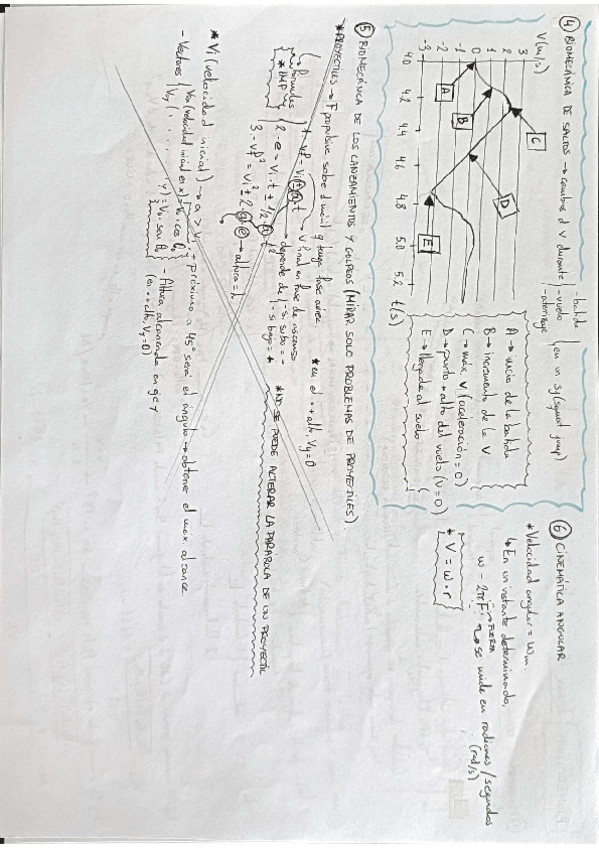 ④ BIOMECÁNICA DE SALTOS → cambios d V durante
- batida
- vuelo
- aterrizaje
en un SJ (squat jump)
V (m/s)
3
2
1
0
-1
-2
-3
4.0 4.2 4.4 4.6 4.8 5.0 5.2 t(s)
A
B
C
D
E
A → inicio de la batida
B → incremento de la V
C → máx V (aceleración = 0)
D → punto + alto del vuelo (V = 0)
E → llegada al suelo
⑤ BIOMECÁNICA DE LOS LANZAMIENTOS Y GOLPEOS (MIRAR SOLO PROBLEMAS DE PROYECTILES)
* PROYECTILES → F propulsiva sobre el móvil q tenga fase aérea
* en el ++ alto, Vy = 0
fórmulas
* IMP
1. vf = vi ± a · t → v final en fase de ascenso
2. e = vi · t ± 1/2 a t² → depende de
- si subo = -
- si bajo = +
3. vf² = vi² ± 2 · a · e → altura = h
* NO SE PUEDE ALTERAR LA PARÁBOLA DE UN PROYECTIL
* Vi (velocidad inicial) → a > V, + próximo a 45º será el ángulo → obtener el max. alcance
- Vectores
Vox (velocidad inicial en x) = Vo · cos θ
Voy ( " " " y) = Vo · sen θ
- Altura alcanzada en eje y
(en ++ alto, Vy = 0)
⑥ CINEMÁTICA ANGULAR
* Velocidad angular = Wm
↳ En un instante determinado,
w = 2πF → se mide en radianes/segundos
→ FUERZA
(rad/s)
* V = w · r